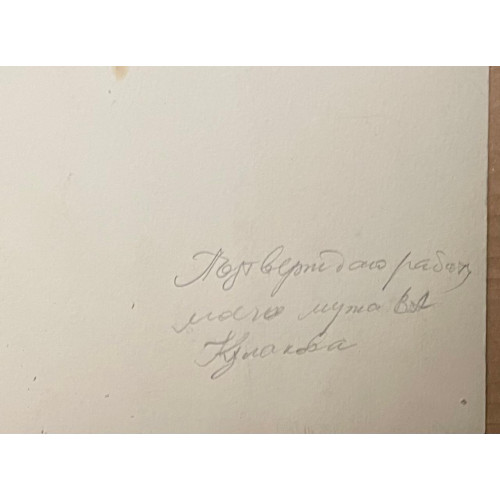 Подтверждаю работу
моего мужа В.А
Кулакова